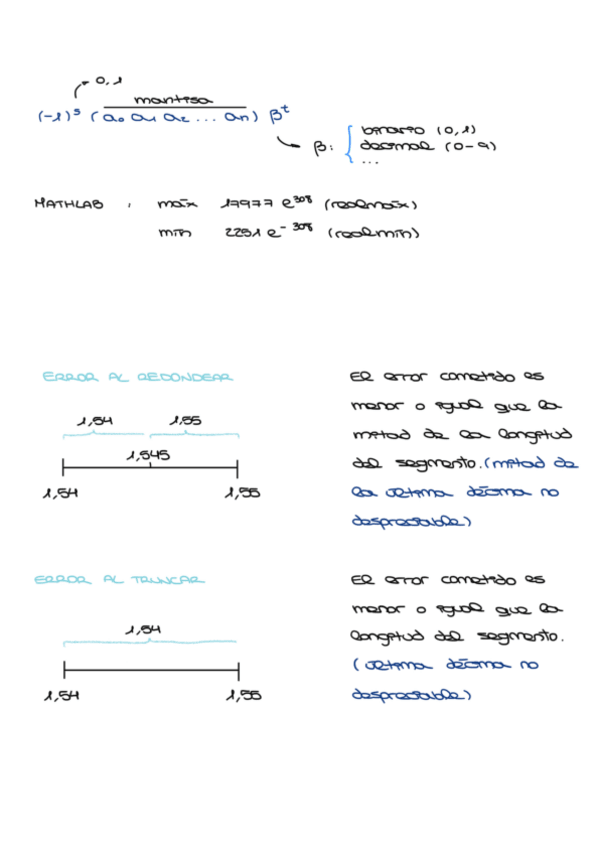 0, 1
mantisa
(-1)ˢ (a₀ a₁ a₂ ... aₙ) βᵗ
β: binario (0,1)
decimal (0-9)
...
MATHLAB , máx 17977 e³⁰⁸ (realmáx)
mín 2251 e⁻³⁰⁸ (realmín)
ERROR AL REDONDEAR
1,54 1,55
1,545
1,54 1,55
El error cometido es
menor o igual que la
mitad de la longitud
del segmento. (mitad de
la última décima no
despreciable)
ERROR AL TRUNCAR
1,54
1,54 1,55
El error cometido es
menor o igual que la
longitud del segmento.
(última décima no
despreciable)